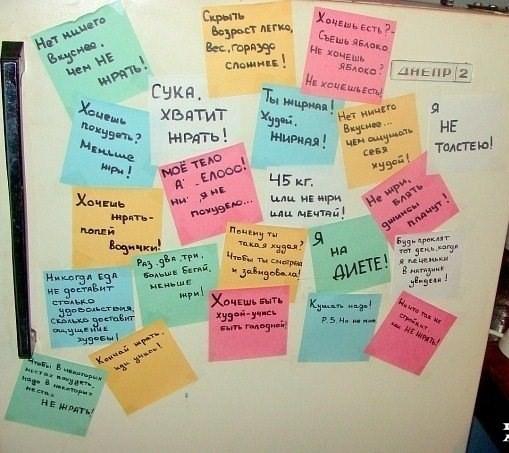 Нет ничего
Вкуснее,
чем НЕ
ЖРАТЬ!
Скрыть
возраст легко,
Вес, гораздо
сложнее!
Хочешь есть?-
Съешь яблоко
Не хочешь
яблоко?
Не хочешь есть!
ДНЕПР 2
Хочешь
похудеть?
Меньше
жри!
СУКА,
ХВАТИТ
ЖРАТЬ!
Ты жирная!
Худей,
ЖИРНАЯ!
Нет ничего
Вкуснее...
чем ощущать
себя
худой!
Я
НЕ
ТОЛСТЕЮ!
Хочешь
жрать-
попей
водички!
МОЁ ТЕЛО
ЕЛООО!
Я НЕ
ПОХУДЕЛО...
45 кг.
или не жри
или мечтай!
Не жри,
БЛЯТЬ
джинсы
плачут!
Никогда ЕДА
не доставит
столько
удовольствия,
сколько доставит
ощущение
худобы!
Раз, два, три,
больше бегай,
меньше
жри!
Почему ты
такая худая?
Чтобы ты смотрела
и завидовала!
Я
НА
ДИЕТЕ!
Будь проклят
тот день, когда
я печеньки
в магазине
увидела!
Чтобы в некоторых
местах похудеть,
надо в некоторых
местах
НЕ ЖРАТЬ!
Кончай жрать,
иди учись!
Хочешь быть
худой-учись
быть голодной!
Кушать надо!
P.S. Но не мне
Никто так не
стройнит,
как НЕ ЖРАТЬ!